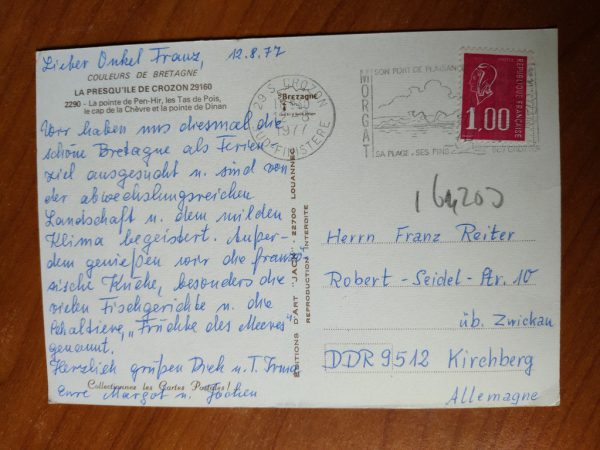 Lieber Onkel Franz, 12.8.77
COULEURS DE BRETAGNE
LA PRESQU'ILE DE CROZON 29160
2290 - La pointe de Pen-Hir, les Tas de Pois,
le cap de la Chèvre et la pointe de Dinan
Wir haben uns diesmal die
schöne Bretagne als Ferien-
ziel ausgesucht u. sind von
der abwechslungsreichen
Landschaft u. dem milden
Klima begeistert. Außer-
dem genießen wir die franzö-
sische Küche, besonders die
vielen Fischgerichte u. die
Schaltiere, "Früchte des Meeres"
genannt.
Herzlich grüßen Dich u. T. Irma
Eure Margot u. Jochen
Collectionnez les Cartes Postales !
Bretagne
EDITIONS D'ART "JACK" - 22700 LOUANNEC
REPRODUCTION INTERDITE
29 S. CROZON
1977
SUD-FINISTERE
MORGAT
SON PORT DE PLAISANCE
SA PLAGE. SES PINS
POSTES
REPUBLIQUE FRANÇAISE
1,00
Herrn Franz Reiter
Robert-Seidel-Str. 10
üb. Zwickau
DDR 9512 Kirchberg
Allemagne